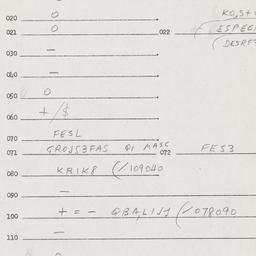 020 O
021 O 022 ESPECI
030 —
040 —
050 O
060 + / $
070 FESL
071 GROJS3FAS QI MASC 072 FES3
080 KRIK8 (/109040
090 —
100 + = - QBA,LIJ1 (/078090
110 —